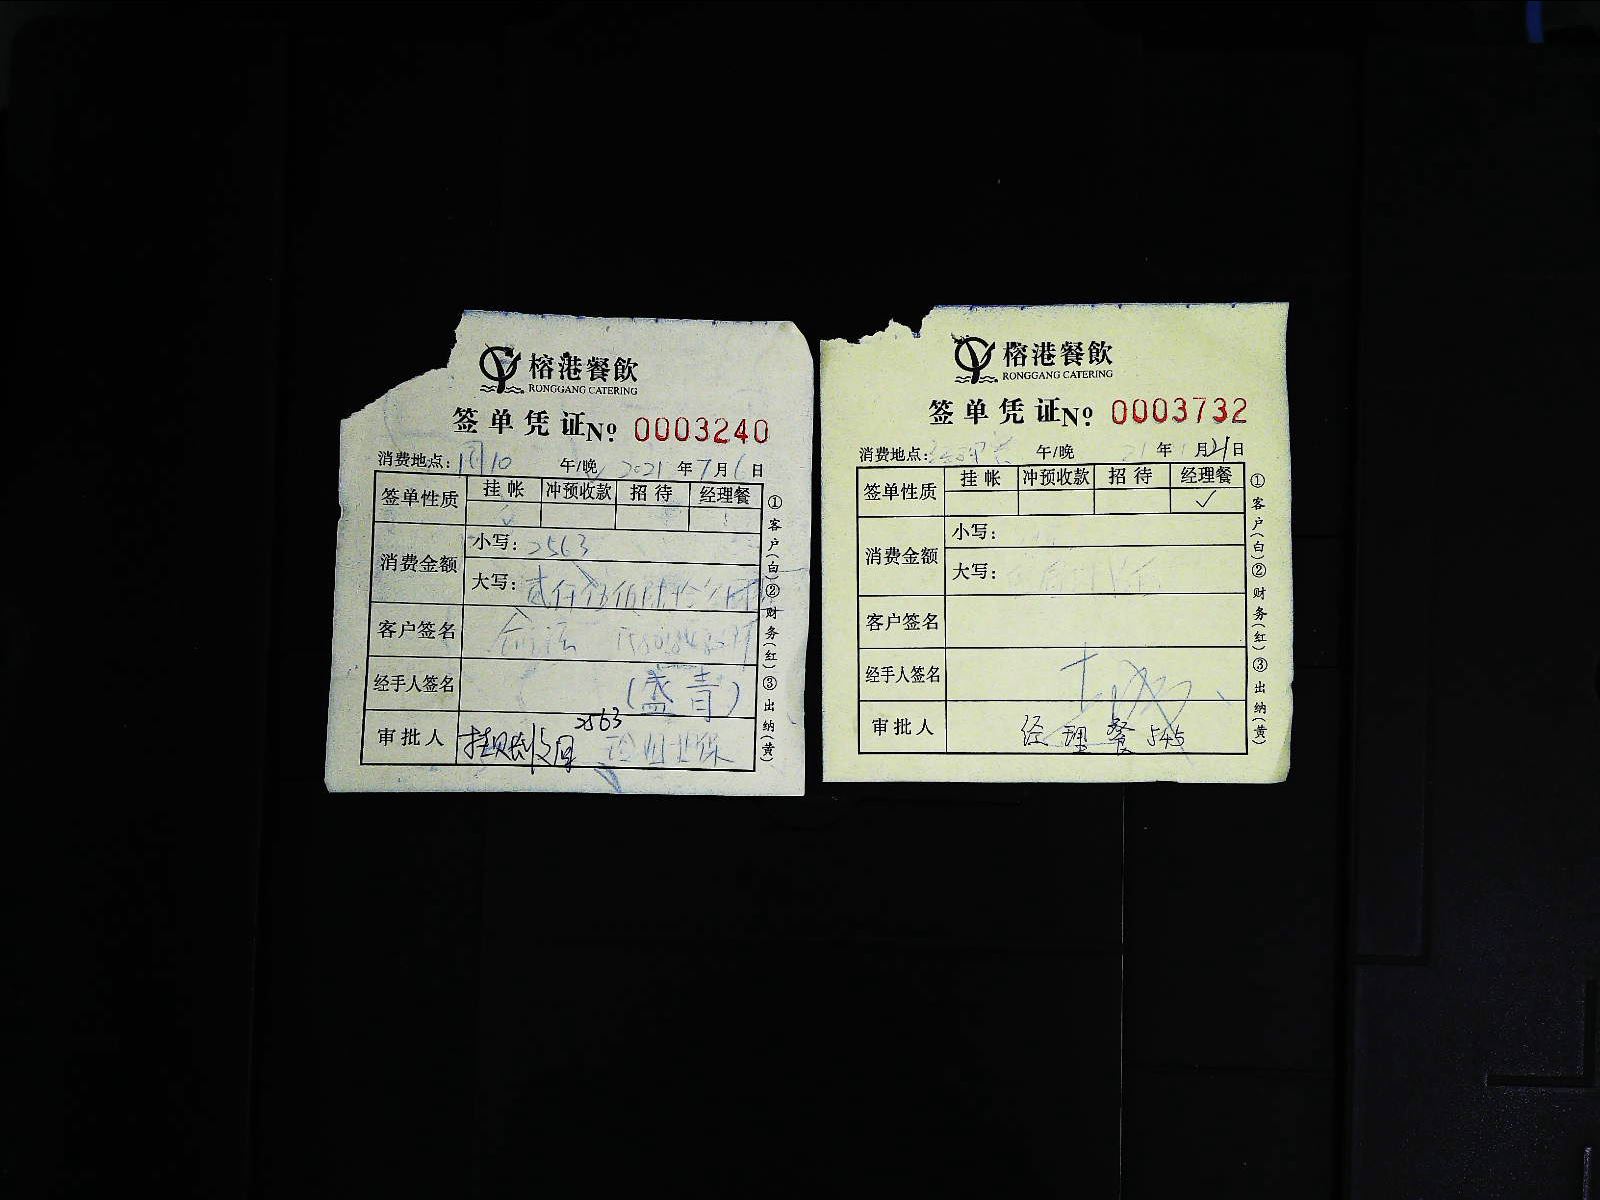 榕港餐飲
RONGGANG CATERING
签单凭证 No. 0003240
消费地点: 午/晚 2021 年 7 月 6 日
签单性质 挂帐 冲预收款 招待 经理餐
✓
消费金额
小写: 2563
大写: 贰仟伍佰陆拾
客户签名
经手人签名 (盛青)
2563
审批人
①客户(白)②财务(红)③出纳(黄)
榕港餐飲
RONGGANG CATERING
签单凭证 No. 0003732
消费地点: 午/晚 21 年 1 月 21 日
签单性质 挂帐 冲预收款 招待 经理餐
✓
消费金额
小写:
大写:
客户签名
经手人签名
审批人 经理餐 545
①客户(白)②财务(红)③出纳(黄)